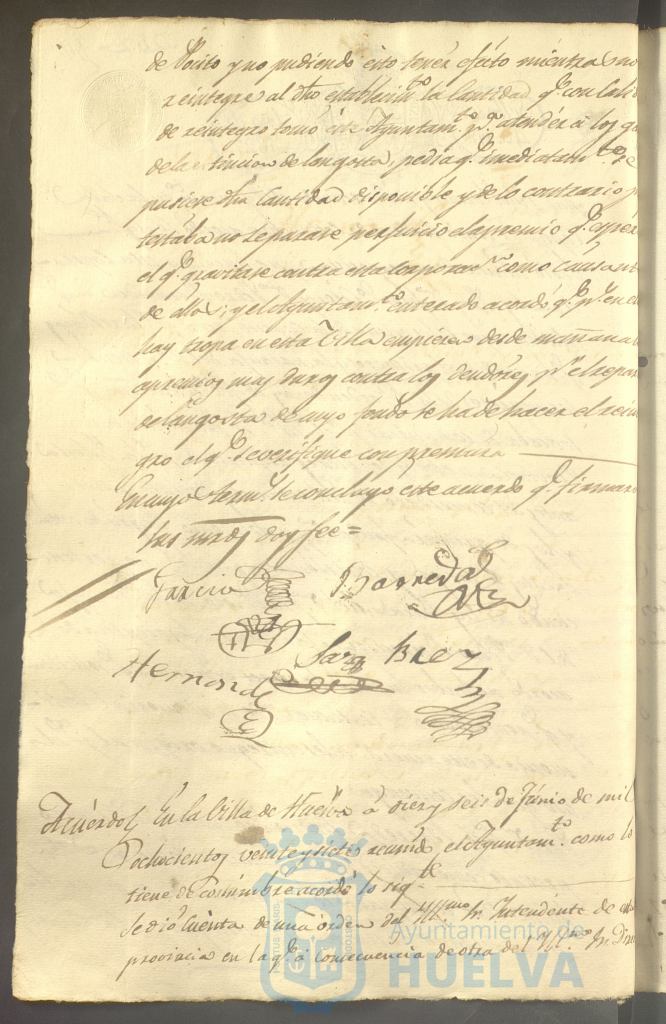 de Posito y no pudiendo esto tener efecto mientras no
reintegre al dho establecimto la Cantidad qe con Calid
de reintegro tomó este Ayuntamto pa atender á los ga
de la estincion de langosta, pedia qe imediatamte se
pusiese dha Cantidad disponible y de lo contrario p
testaba no le parase perjuicio el apremio qe
el qe gravitase contra esta Corporacn como Causant
de ello; y el Ayuntamto enterado acordó qe pr en
hay tropa en esta Villa empiecen desde mañana
apremios mas duros contra los deudores pr el repar
de langosta de cuyo fondo se ha de hacer el rein
gro el qe se verifique con premura
En cuyos termos se concluyó este acuerdo qe firmaro
sus mrds doy fee=
Garcia Barreda
Hernand Baez
Acuerdo En la Villa de Huelva á diez y seis de Junio de mil
ochocientos veinte y siete reunido el Ayuntamto como lo
tiene de costumbre acordó lo sigte
Se dió Cuenta de una orden del Yllmo Sr Intendente de esta
provincia en la qe á Consecuencia de otra del Yllmo Sr Dire
Ayuntamiento de
HUELVA